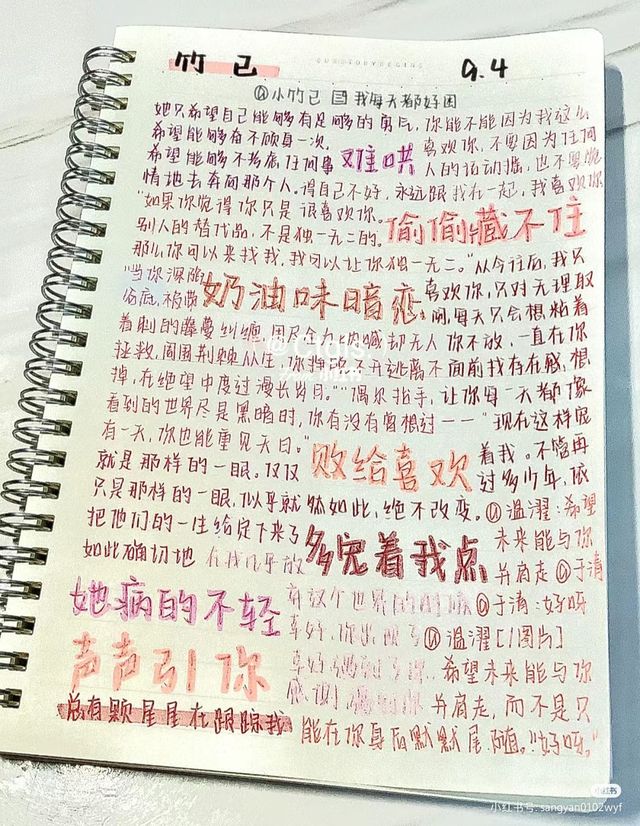 竹已 9.4
@小竹已 我每天都好困
她只希望自己能够有足够的勇气,你能不能因为我这么
希望能够有不顾身一次, 喜欢你,不要因为任何
希望能够不考虑任何事 难哄 人的话动摇,也不要觉
情地去奔向那个人。得自己不好,永远跟我在一起,我喜欢你
"如果你觉得你只是 很喜欢你。
别人的替代品,不是独一无二的, 偷偷藏不住
那么你可以来找我,我可以让你独一无二。"从今往后,我只
"当你深陷 奶油味暗恋 喜欢你,只对无理取
闹,每天只会想粘着
着刺的藤蔓纠缠,用尽全力 喊却无人 你不放,一直在你
拯救,周围荆棘丛生,你挣 不开逃离不 面前找存在感,想
掉,在绝望中度过漫长岁月。" "偶尔 让你每一天都像
看到的世界尽是黑暗时,你有没有曾想过—— 现在这样
有一天,你也能重见天日。" 败给喜欢 着我。不管再
就是那样的一眼。仅仅 过多少年,依
只是那样的一眼,似乎就 然如此,绝不改变。@温濯:希望
把他们的一生给定下来了 多宠着我点 未来能与你
如此确切地 并肩走@于清
她病的不轻 有这个世界的 @于清:好呀
幸好,你出现了@温濯[1图片]
声声引你 幸好 遇到了你, 希望未来能与你
并肩走,而不是只
总有颗星星在跟踪我 能在你身后默默尾随。"好呀。"
小红书
小红书号:sangyan0102wyf